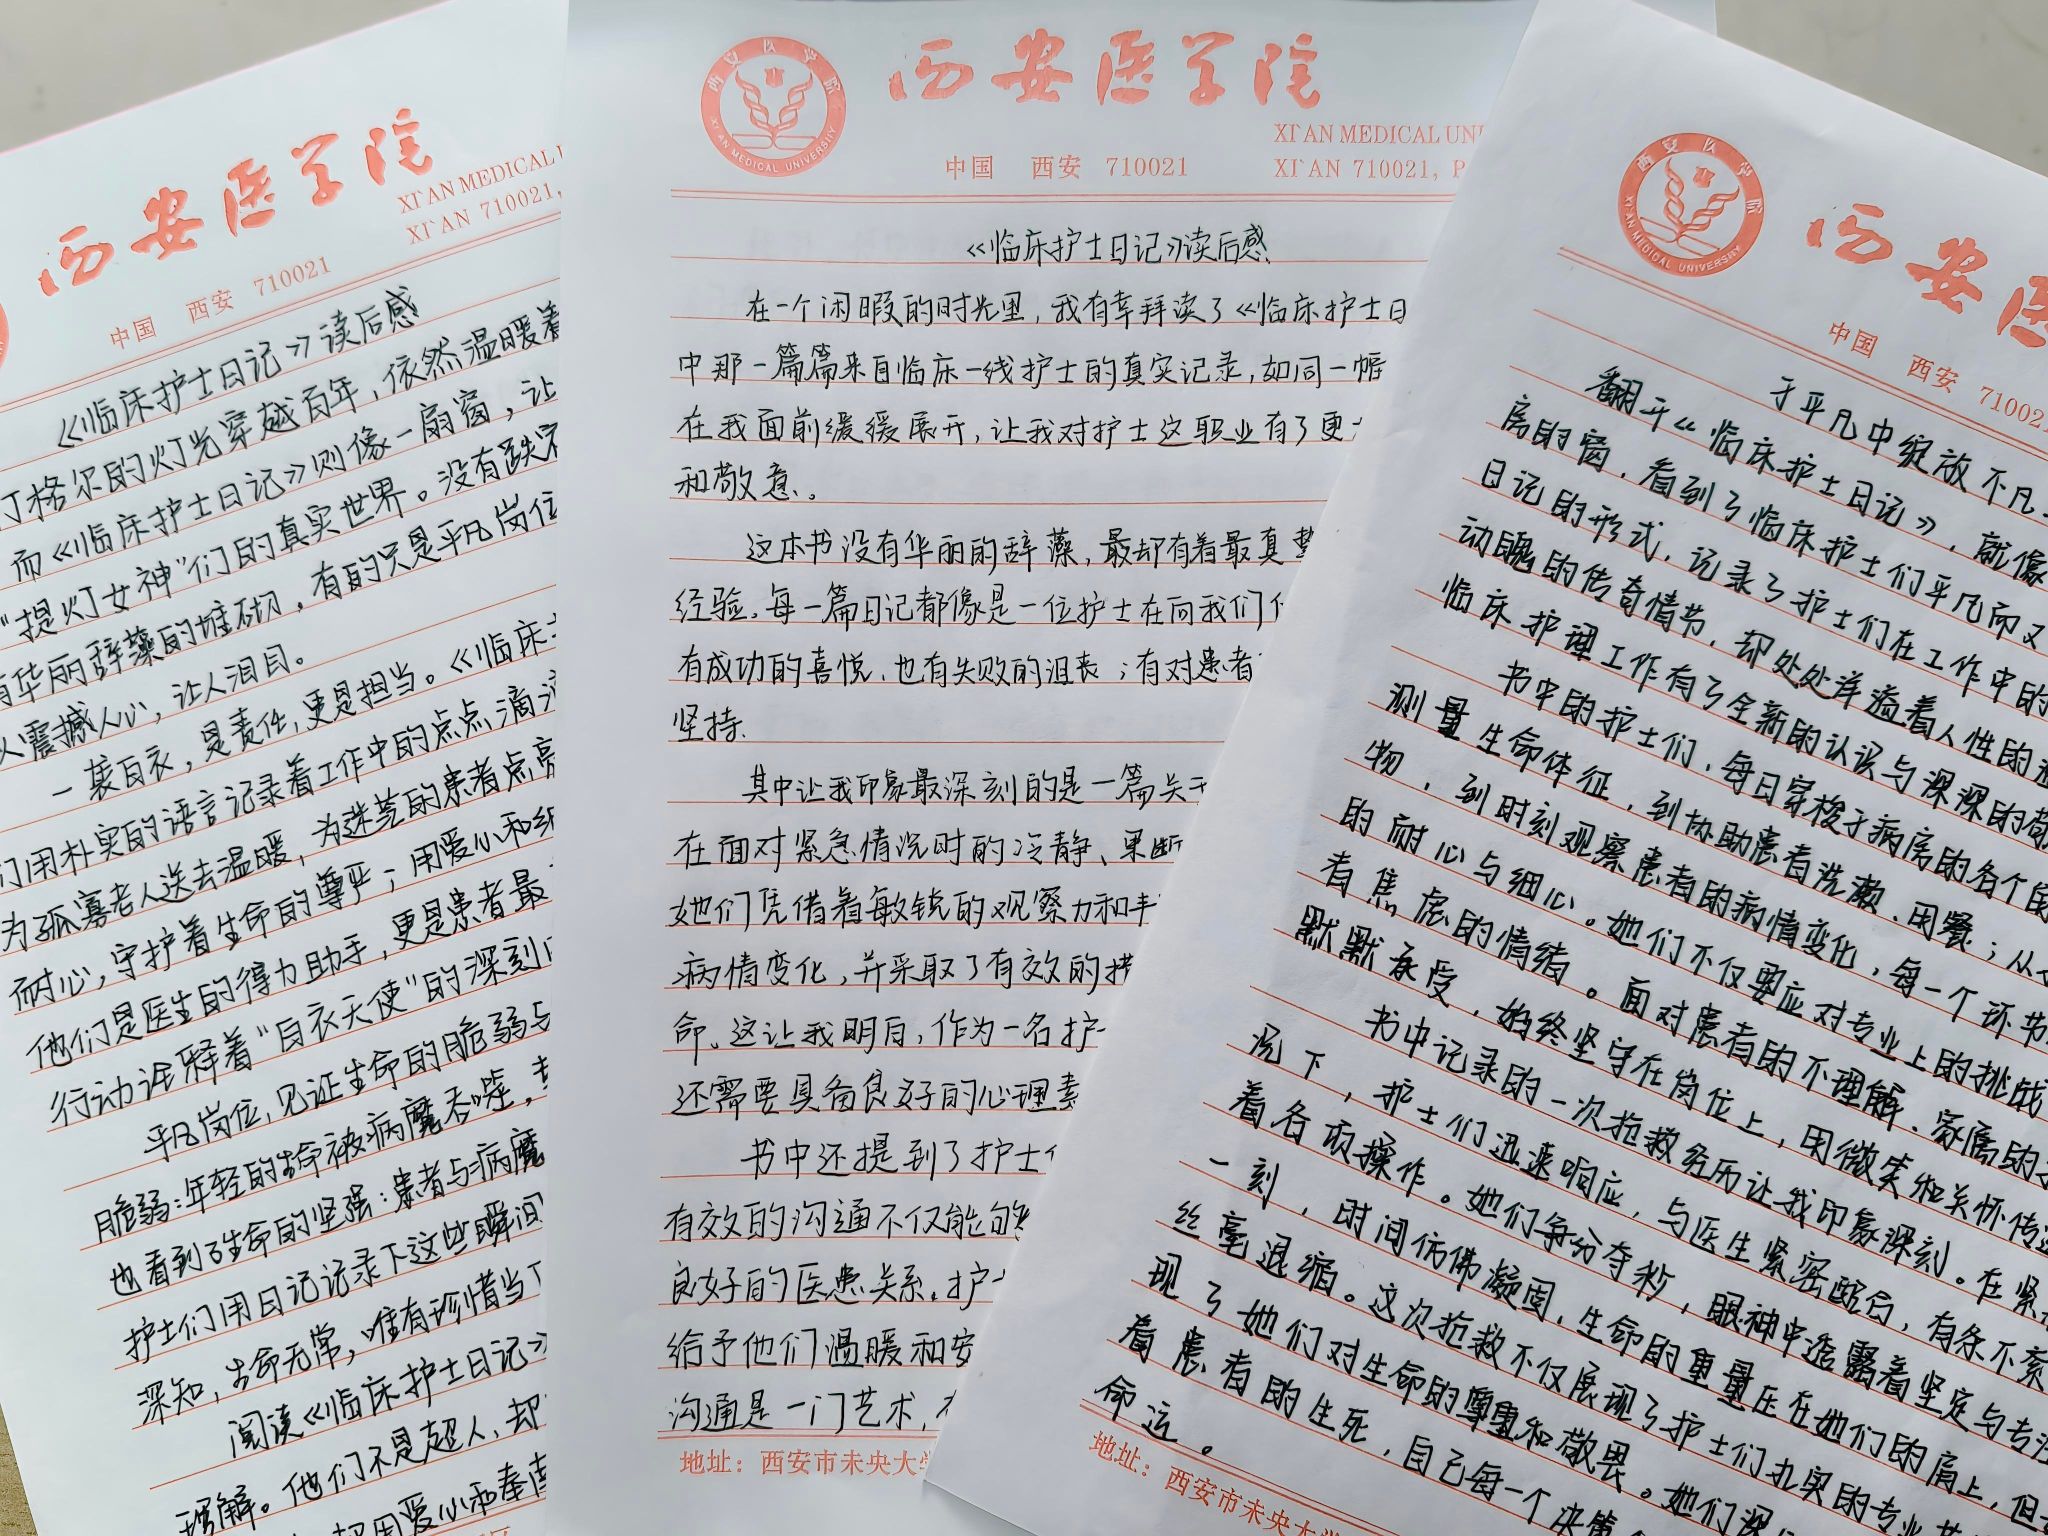 西安医学院
XI'AN MEDICAL
XI'AN 710021,
中国 西安 710021
《临床护士日记》读后感
丁格尔的灯光穿越百年，依然温暖着
而《临床护士日记》则像一扇窗，让
"提灯女神"们的真实世界。没有跌宕
有华丽辞藻的堆砌，有的只是平凡岗位
以震撼人心，让人泪目。
一袭白衣，是责任，更是担当。《临床
们用朴实的语言记录着工作中的点点滴滴
为孤寡老人送去温暖，为迷茫的患者点亮
耐心，守护着生命的尊严；用爱心和细
他们是医生的得力助手，更是患者最
行动诠释着"白衣天使"的深刻
平凡岗位，见证生命的脆弱与
脆弱：年轻的生命被病魔吞噬，
也看到了生命的坚强：患者与病魔
护士们用日记记录下这些瞬间
深知，生命无常，唯有珍惜当下
阅读《临床护士日记》
理解。他们不是超人，却
用爱心和奉
西安医学院
西安医学院
XI'AN MEDICAL UNIVERSITY
XI'AN MEDICAL UNI
中国 西安 710021
XI'AN 710021, P
《临床护士日记》读后感
在一个闲暇的时光里，我有幸拜读了《临床护士日
中那一篇篇来自临床一线护士的真实记录，如同一幅
在我面前缓缓展开，让我对护士这职业有了更
和敬意。
这本书没有华丽的辞藻，最却有着最真挚
经验。每一篇日记都像是一位护士在向我们
有成功的喜悦，也有失败的沮丧；有对患者
坚持.
其中让我印象最深刻的是一篇关于
在面对紧急情况时的冷静、果断
她们凭借着敏锐的观察力和丰
病情变化，并采取了有效的措
命。这让我明白，作为一名护
还需要具备良好的心理素
书中还提到了护士
有效的沟通不仅能够
良好的医患关系。护
给予他们温暖和安
沟通是一门艺术，
地址：西安市未央大学
西安医学院
XI'AN MEDICAL UNIVERSITY
西安医
中国 西安 71002
于平凡中绽放不凡
翻开《临床护士日记》，就像
房的窗，看到了临床护士们平凡而又
日记的形式，记录了护士们在工作中的
动魄的传奇情节，却处处洋溢着人性的温
临床护理工作有了全新的认识与深深的敬
书中的护士们，每日穿梭于病房的各个角
测量生命体征，到协助患者洗漱、用餐；从
物，到时刻观察患者的病情变化，每一个环节
的耐心与细心。她们不仅要应对专业上的挑战
者焦虑的情绪。面对患者的不理解、家属的
默默承受，始终坚守在岗位上，用微笑和关怀传递
书中记录的一次抢救经历让我印象深刻。在紧
况下，护士们迅速响应，与医生紧密配合，有条不紊
着各项操作。她们争分夺秒，眼神中透露着坚定与专注
一刻，时间仿佛凝固，生命的重量压在她们的肩上，但
丝毫退缩。这次抢救不仅展现了护士们扎实的专业
现了她们对生命的尊重和敬畏。她们深
着患者的生死，自己每一个决策
命运。
地址：西安市未央大学